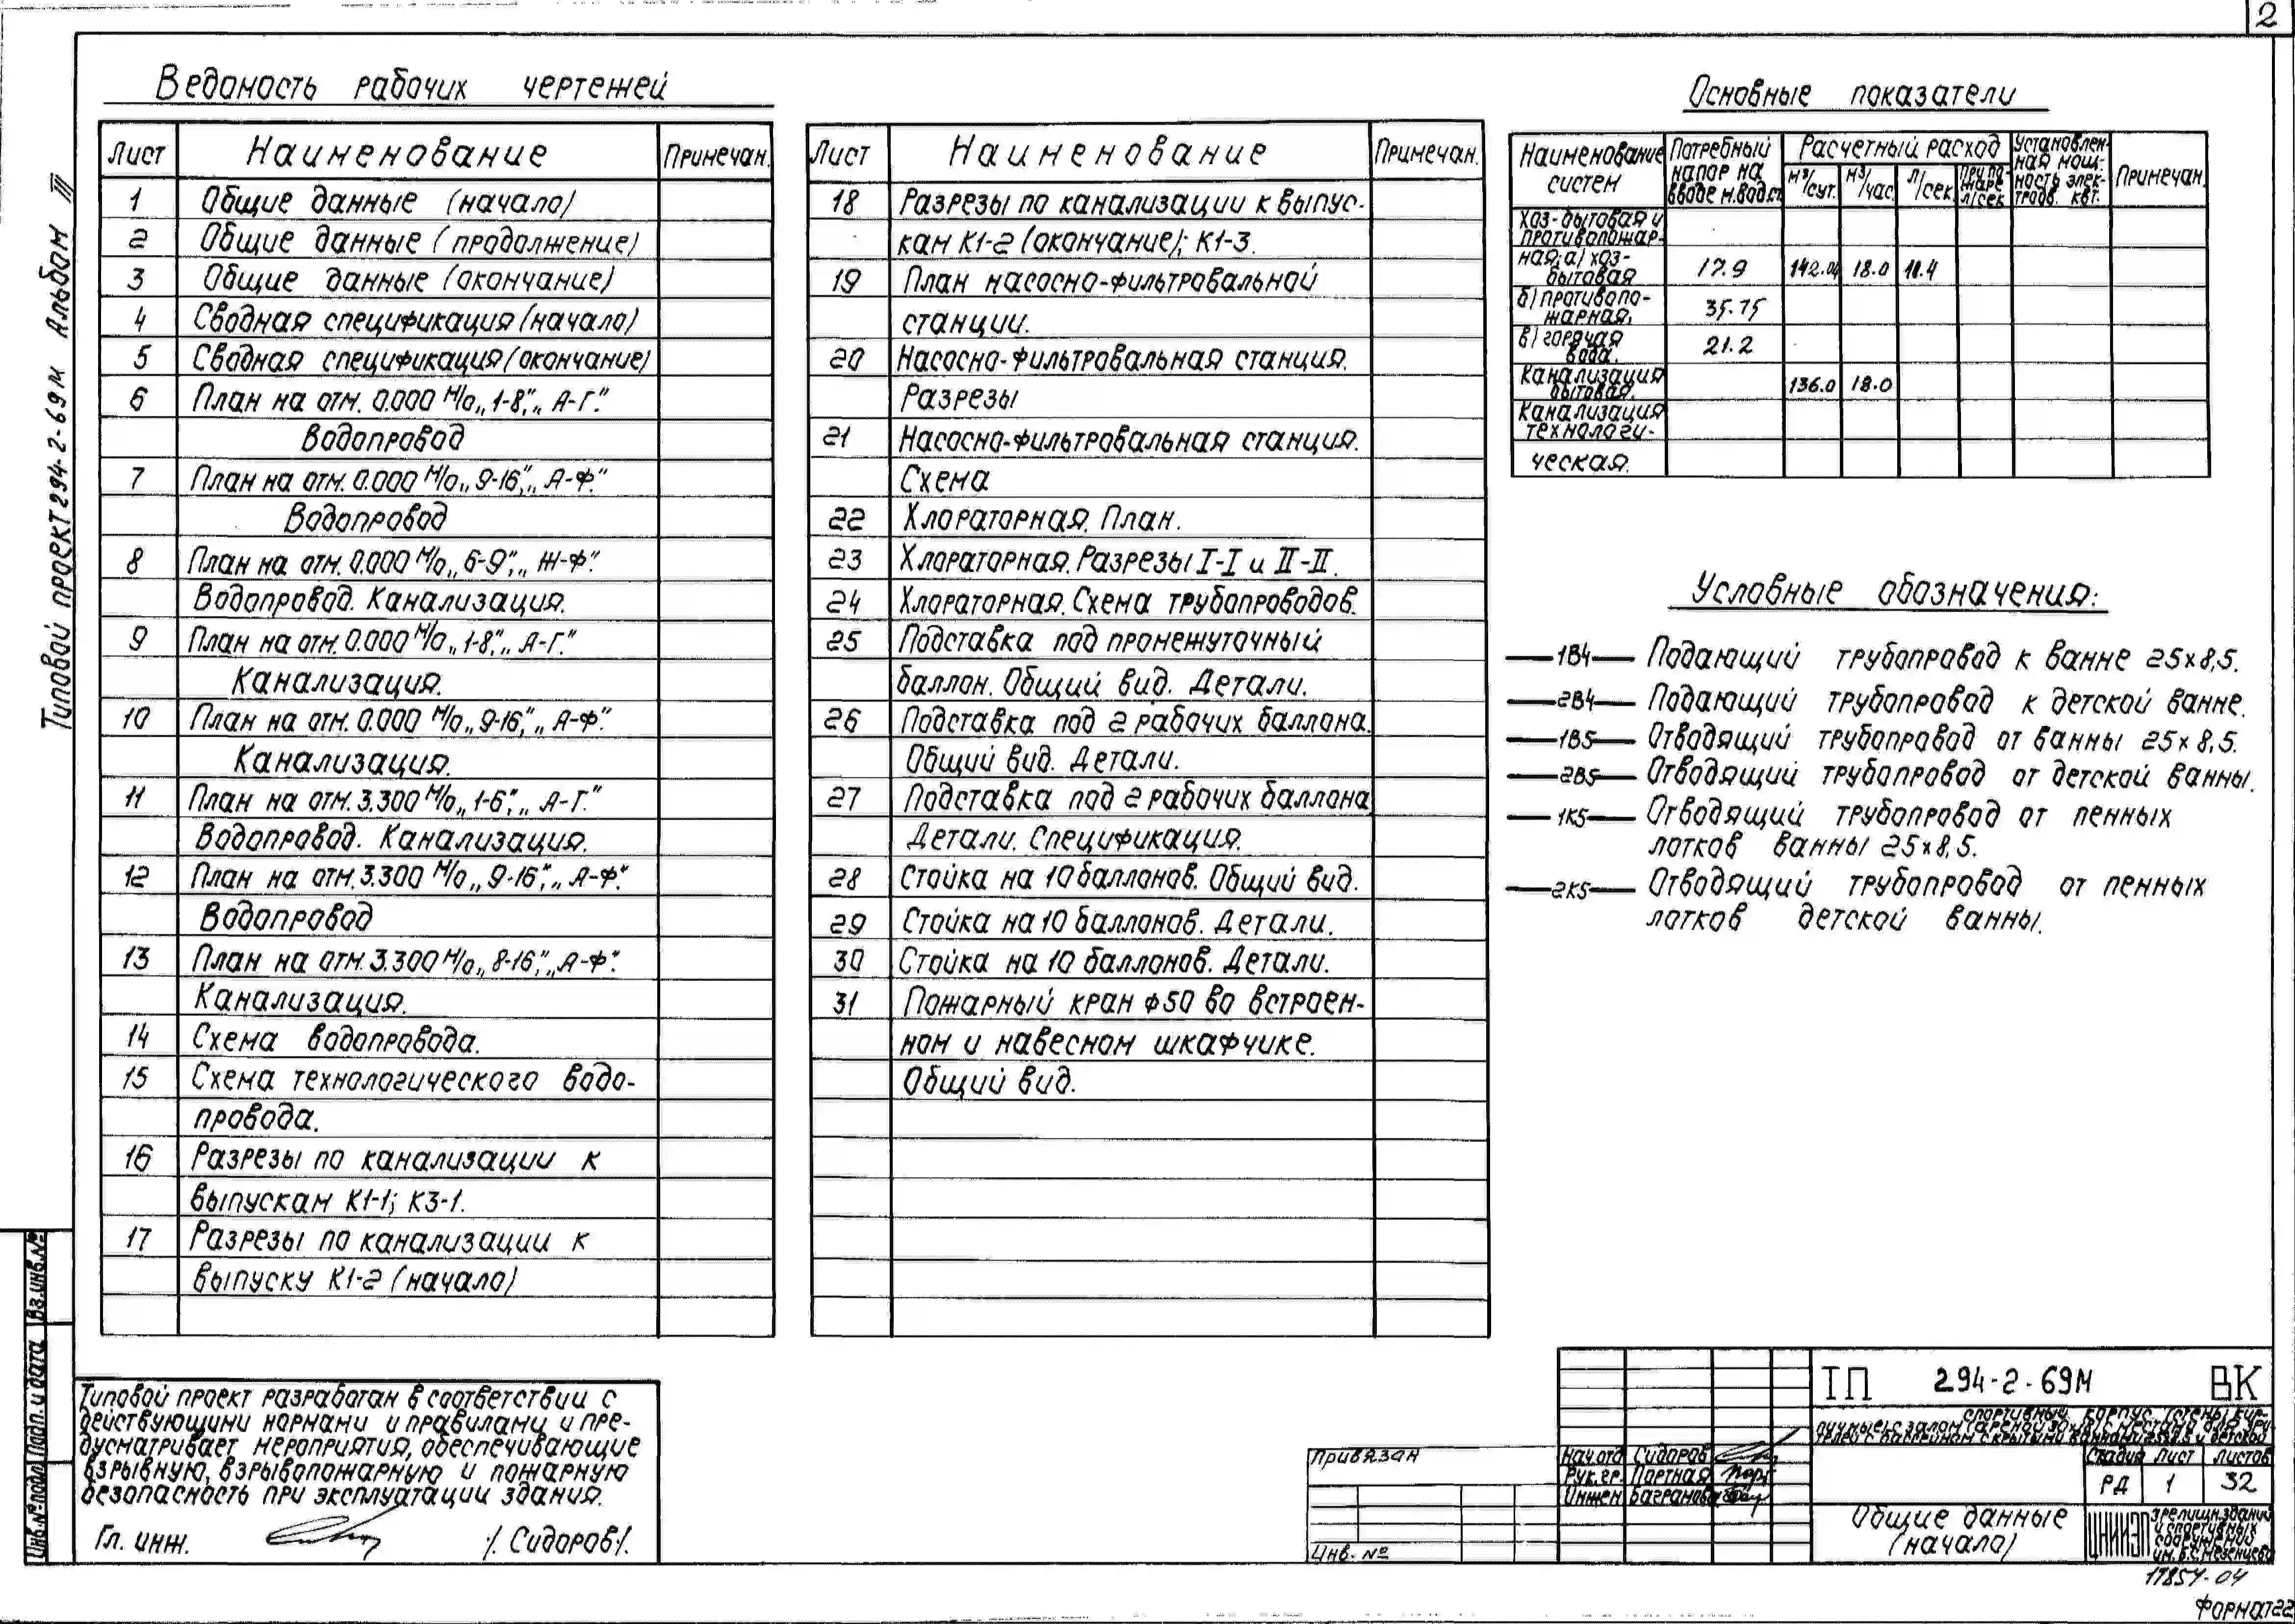 2
Типовой проект 294-2-69м Альбом III
Ведомость рабочих чертежей
Лист Наименование Примечан.
1 Общие данные (начало)
2 Общие данные (продолжение)
3 Общие данные (окончание)
4 Сводная спецификация (начало)
5 Сводная спецификация (окончание)
6 План на отм. 0.000 м/о „1-8”, „А-Г.”
Водопровод
7 План на отм. 0.000 м/о „9-16”, „А-Ф.”
Водопровод
8 План на отм. 0.000 м/о „6-9”, „Ж-Ф.”
Водопровод. Канализация.
9 План на отм. 0.000 м/о „1-8”, „А-Г.”
Канализация.
10 План на отм. 0.000 м/о „9-16”, „А-Ф.”
Канализация.
11 План на отм. 3.300 м/о „1-6”, „А-Г.”
Водопровод. Канализация.
12 План на отм. 3.300 м/о „9-16”, „А-Ф.”
Водопровод
13 План на отм. 3.300 м/о „8-16”, „А-Ф.”
Канализация.
14 Схема водопровода.
15 Схема технологического водо-
провода.
16 Разрезы по канализации к
выпускам К1-1; К3-1.
17 Разрезы по канализации к
выпуску К1-2 (начало)
Лист Наименование Примечан.
18 Разрезы по канализации к выпус-
кам К1-2 (окончание); К1-3.
19 План насосно-фильтровальной
станции.
20 Насосно-фильтровальная станция.
Разрезы
21 Насосно-фильтровальная станция.
Схема
22 Хлораторная. План.
23 Хлораторная. Разрезы I-I и II-II.
24 Хлораторная. Схема трубопроводов.
25 Подставка под промежуточный
баллон. Общий вид. Детали.
26 Подставка под 2 рабочих баллона.
Общий вид. Детали.
27 Подставка под 2 рабочих баллона
Детали. Спецификация.
28 Стойка на 10 баллонов. Общий вид.
29 Стойка на 10 баллонов. Детали.
30 Стойка на 10 баллонов. Детали.
31 Пожарный кран ф50 во встроен-
ном и навесном шкафчике.
Общий вид.
Основные показатели
Наименование систем Потребный напор на вводе м.вод.ст. Расчетный расход м³/сут. м³/час. л/сек. при пожаре л/сек Установленная мощность элек-тродв. квт. Примечан.
Хоз-бытовая и
противопожар-
ная; а) хоз-
бытовая 17.9 142.04 18.0 11.4
б) противопо-
жарная. 35.75
в) горячая
вода. 21.2
Канализация
бытовая. 136.0 18.0
Канализация
технологи-
ческая.
Условные обозначения:
—1В4— Подающий трубопровод к ванне 25×8,5.
—2В4— Подающий трубопровод к детской ванне.
—1В5— Отводящий трубопровод от ванны 25×8,5.
—2В5— Отводящий трубопровод от детской ванны.
—1К5— Отводящий трубопровод от пенных
лотков ванны 25×8,5.
—2К5— Отводящий трубопровод от пенных
лотков детской ванны.
Инв.№ подл Подп. и дата Вз.инв.№
Типовой проект разработан в соответствии с
действующими нормами и правилами и пре-
дусматривает мероприятия, обеспечивающие
взрывную, взрывопожарную и пожарную
безопасность при эксплуатации здания.
Гл. инж. /. Сидоров /.
Привязан
Инв. №
ТП 294-2-69м ВК
Нач.отд Сидоров
Рук.гр. Портная
Инжен Багранова
Стадия Лист Листов
РД 1 32
Общие данные
(начало)
ЦНИИЭП
зрелищн.зданий
и спортивных
сооружений
им. Б.С.Мезенцева
17854-04
Формат 22